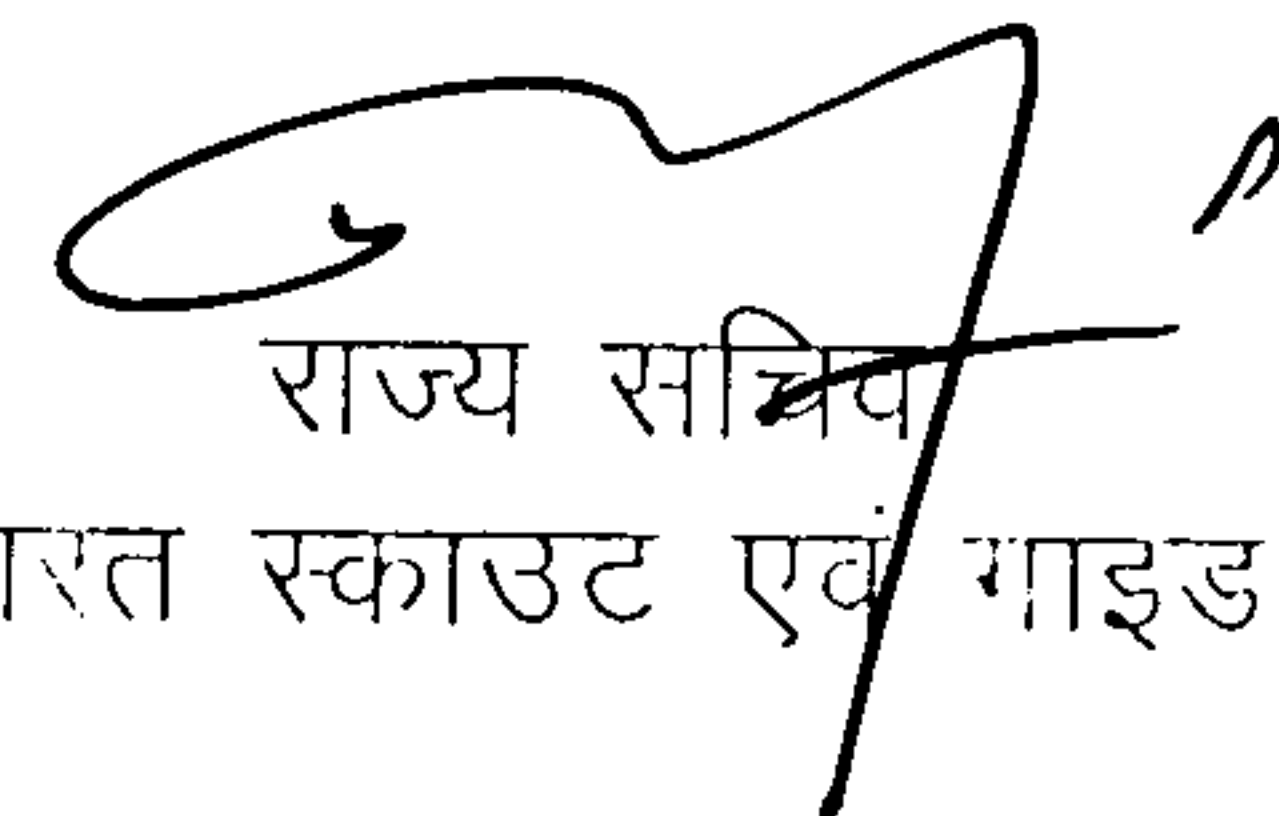 राज्य सचिव
ारत स्काउट एवं गाइड